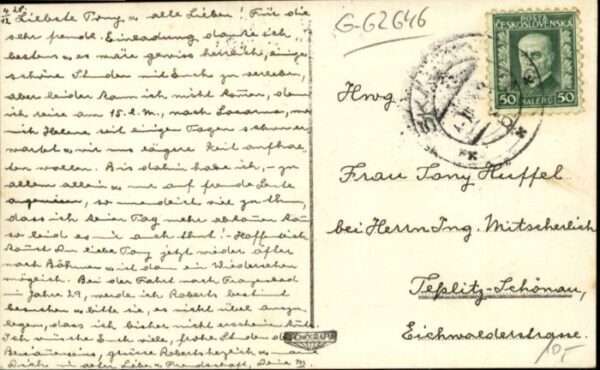 Liebste Tony u alle Lieben! Für die
sehr freundl. Einladung danke ich
bestens u es wäre gewiss herrlich, einige
schöne Stunden mit Euch zu verleben,
aber leider kann ich nicht kommen, denn
ich reise am 15. l. M. nach Locarno, wo
mich Helene seit einigen Tagen schon er-
wartet u wir uns längere Zeit aufhal-
ten wollen. Bis dahin habe ich, - zu
allem allein u nur auf fremde Leute
angewiesen, so
dass ich keinen Tag mehr
so leid es mir auch thut! - Hoffentlich
kannst Du liebe Tony jetzt wieder öfter
nach Böhmen u ist dann ein Wiedersehen
möglich. Bei der Fahrt nach Franzensbad
im Jahre 29, werde ich Roberts bestimmt
besuchen u bitte sie, es nicht übel auszu-
legen, dass ich bisher nicht erschienen bin.
Ich wünsche Euch viele, frohe Stunden des
Beisammenseins, grüsse Roberts herzlich u
Dich in alter Liebe u Freundschaft, Deine M.
G-62646
POŠTA
ČESKOSLOVENSKÁ
50 HALÉŘŮ 50
Hwg
Frau Tony Huffel
bei Herrn Ing. Mitscherlich
Teplitz-Schönau,
Eichwalderstrasse.